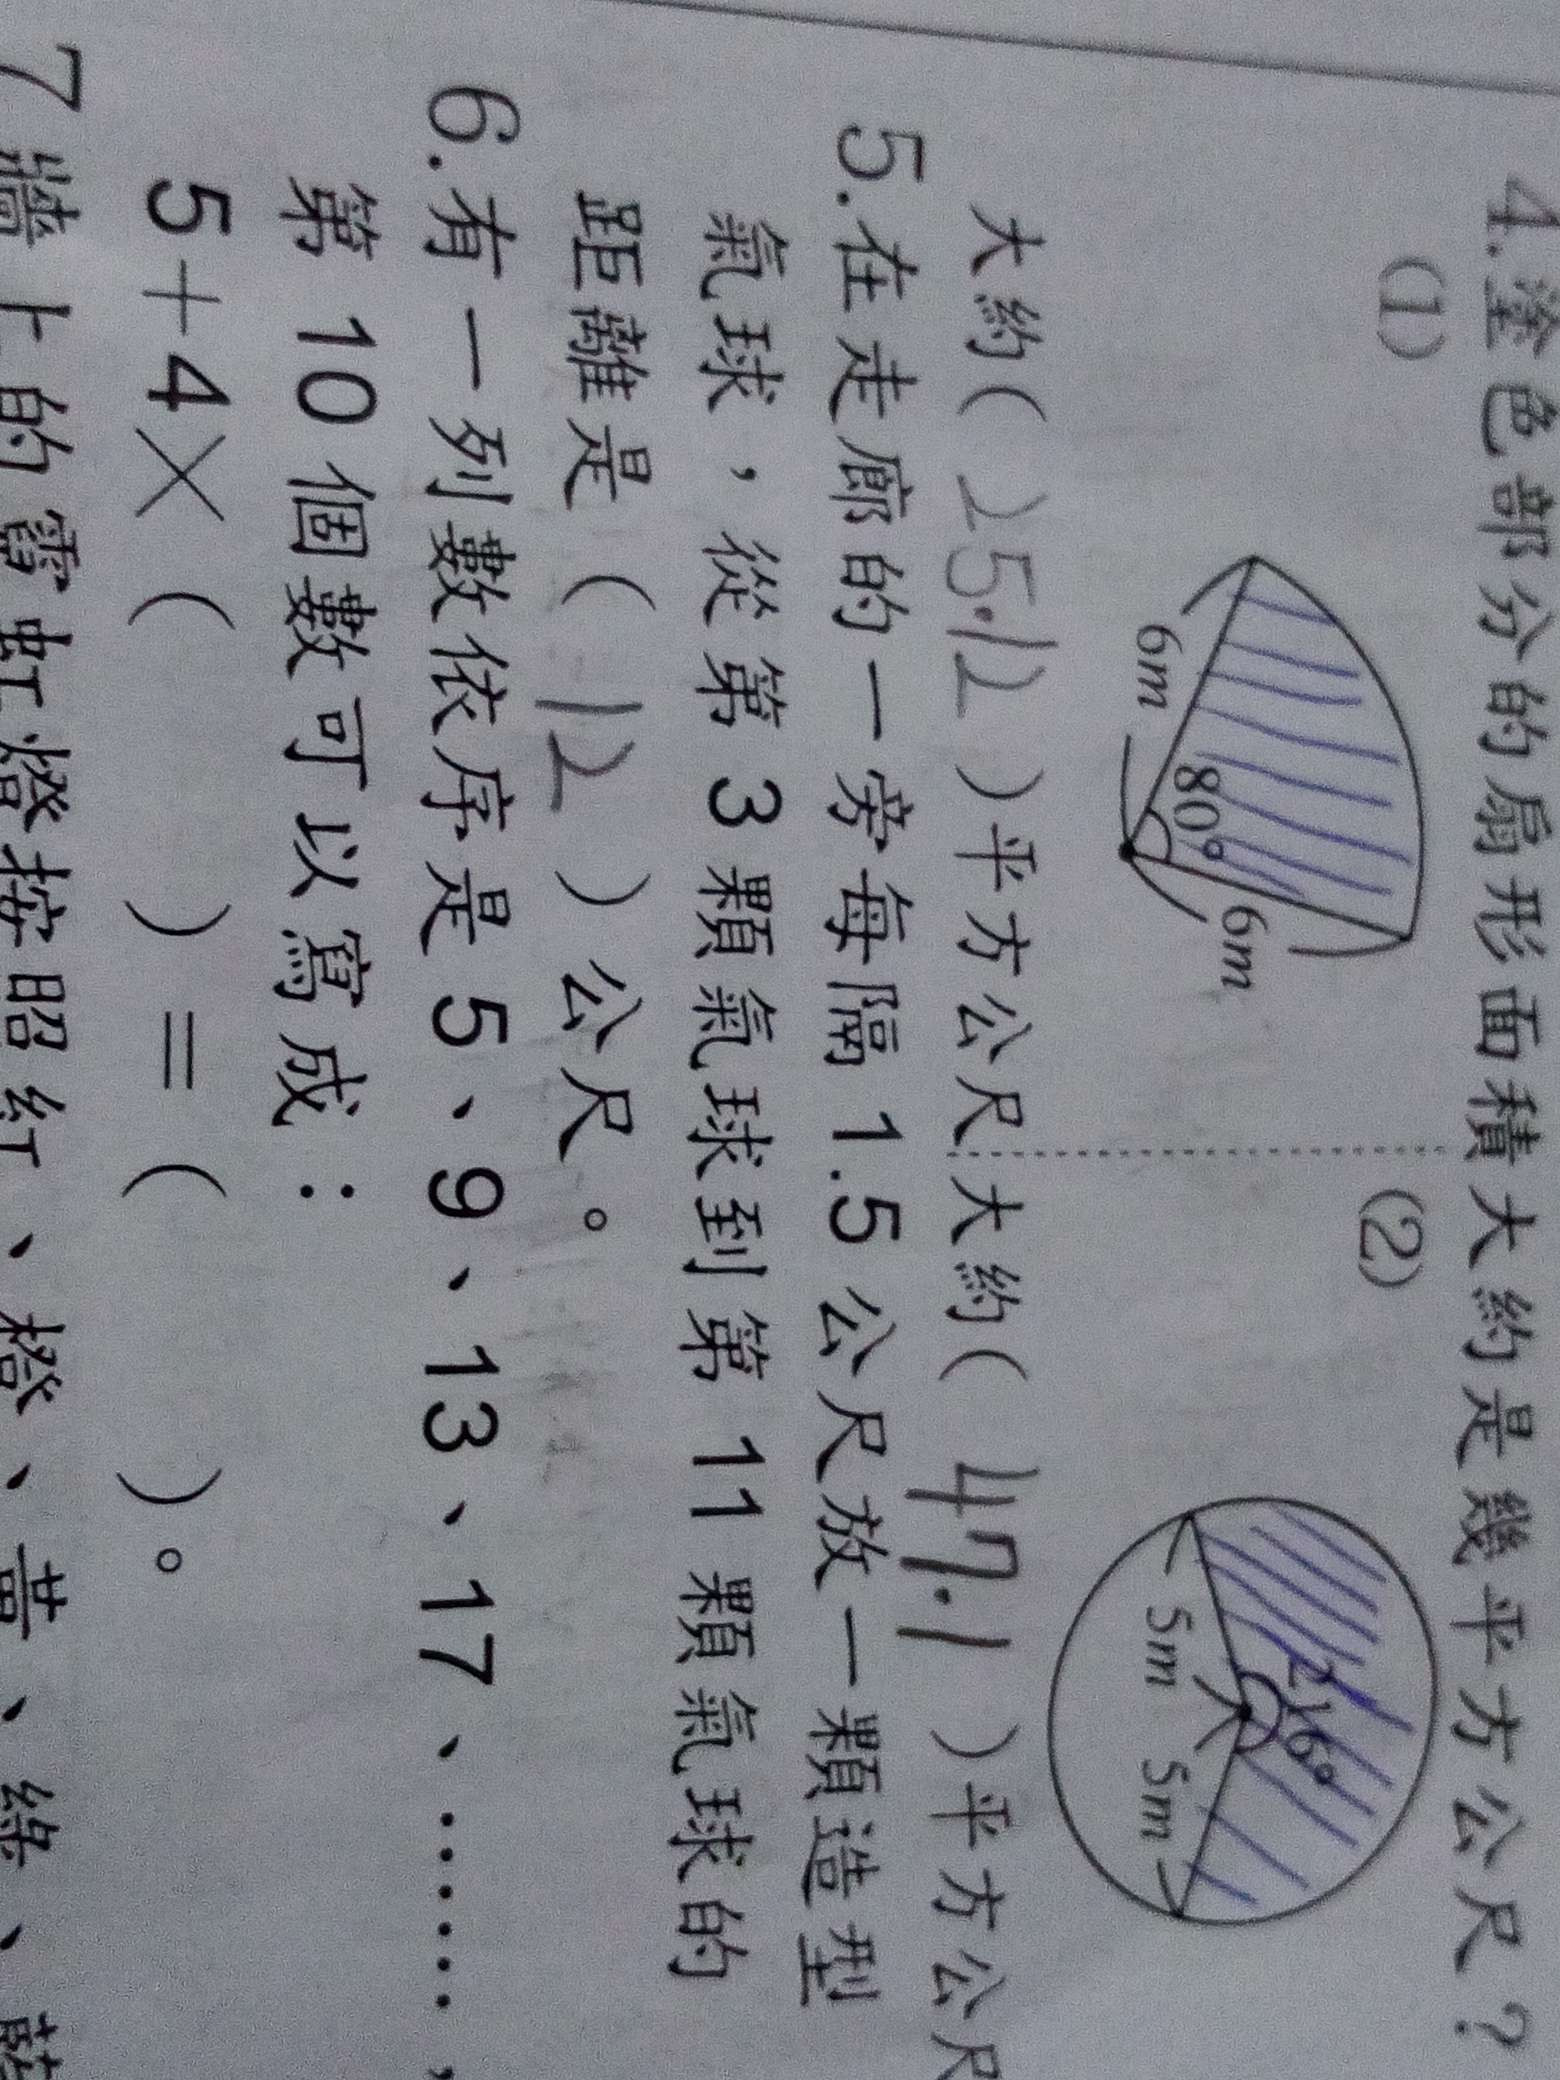 4.塗色部分的扇形面積大約是幾平方公尺?
(1)
(2)
6m
80°
6m
216°
5m
5m
大約( 25.12 )平方公尺
大約( 47.1 )平方公尺
5.在走廊的一旁每隔 1.5 公尺放一顆造型
氣球,從第 3 顆氣球到第 11 顆氣球的
距離是( 12 )公尺。
6.有一列數依序是 5、9、13、17、……,
第 10 個數可以寫成:
5+4×( )=( )。
7牆上的霓虹燈按照紅、橙、黃、綠、藍